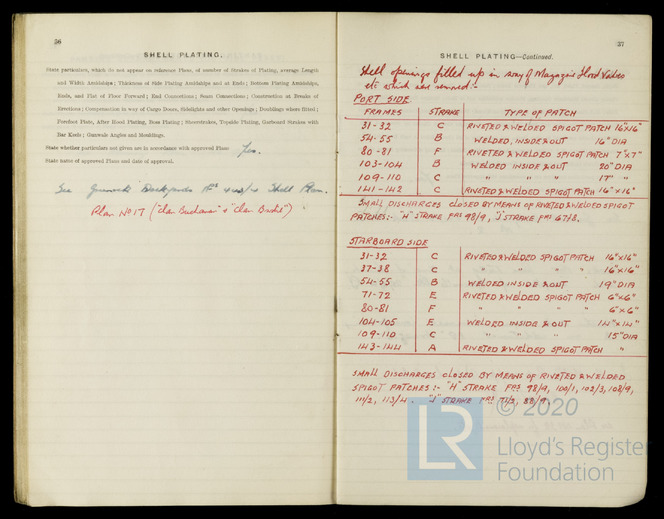 36
SHELL PLATING.
State particulars, which do not appear on reference Plans, of number of Strakes of Plating, average Length
and Width Amidships; Thickness of Side Plating Amidships and at Ends; Bottom Plating Amidships,
Ends, and Flat of Floor Forward; End Connections; Seam Connections; Construction at Breaks of
Erections; Compensation in way of Cargo Doors, Sidelights and other Openings; Doublings where fitted;
Forefoot Plate, After Hood Plating, Boss Plating; Sheerstrakes, Topside Plating, Garboard Strakes with
Bar Keels; Gunwale Angles and Mouldings.
State whether particulars not given are in accordance with approved Plans Yes.
State name of approved Plans and date of approval.
See Greenock Dockyards Shell Plan.
Plan No 17 ("Clan Buchanan" & "Clan Brodie").
37
SHELL PLATING—Continued.
Shell openings filled up in way of Magazine Flood Valves
etc which were removed:-
PORT SIDE
FRAMES STRAKE TYPE OF PATCH
31-32 C RIVETED & WELDED SPIGOT PATCH 16"x16"
54-55 B WELDED, INSIDE & OUT 16" DIA
80-81 F RIVETED & WELDED SPIGOT PATCH 7"x7"
103-104 B WELDED INSIDE & OUT 20" DIA
109-110 C " " " 17" "
141-142 C RIVETED & WELDED SPIGOT PATCH 16"x16"
SMALL DISCHARGES CLOSED BY MEANS OF RIVETED & WELDED SPIGOT
PATCHES:- "H" STRAKE FRS 98/9, "J" STRAKE FRS 67/8.
STARBOARD SIDE
31-32 C RIVETED & WELDED SPIGOT PATCH 16"x16"
37-38 C " " " " 16"x16"
54-55 B WELDED INSIDE & OUT 19" DIA
71-72 E RIVETED & WELDED SPIGOT PATCH 6"x6"
80-81 F " " " " 6"x6"
104-105 E WELDED INSIDE & OUT 14"x14"
109-110 C " " " 15" DIA
143-144 A RIVETED & WELDED SPIGOT PATCH "
SMALL DISCHARGES CLOSED BY MEANS OF RIVETED & WELDED
SPIGOT PATCHES:- "H" STRAKE FRS 98/9, 100/1, 102/3, 108/9,
111/2, 113/4. "J" STRAKE FRS 71/2, 88/9.
© 2020
LR
Lloyd's Register
Foundation